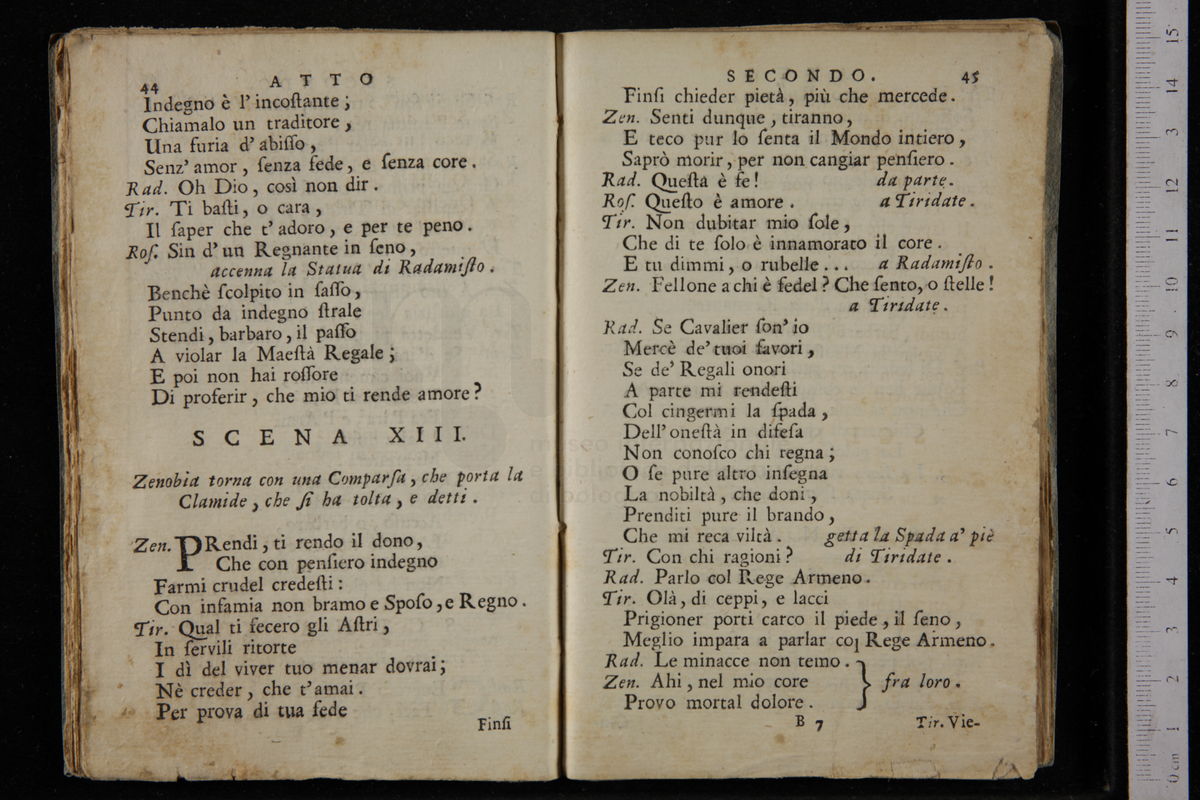 44 ATTO
Indegno è l' incoſtante;
Chiamalo un traditore,
Una furia d' abiſſo,
Senz' amor, ſenza fede, e ſenza core.
Rad. Oh Dio, così non dir.
Tir. Ti baſti, o cara,
Il ſaper che t' adoro, e per te peno.
Roſ. Sin d' un Regnante in ſeno,
accenna la Statua di Radamiſto.
Benchè ſcolpito in ſaſſo,
Punto da indegno ſtrale
Stendi, barbaro, il paſſo
A violar la Maeſtà Regale;
E poi non hai roſſore
Di proferir, che mio ti rende amore?
SCENA XIII.
Zenobia torna con una Comparſa, che porta la
Clamide, che ſi ha tolta, e detti.
Zen. PRendi, ti rendo il dono,
Che con penſiero indegno
Farmi crudel credeſti:
Con infamia non bramo e Spoſo, e Regno.
Tir. Qual ti fecero gli Aſtri,
In ſervili ritorte
I dì del viver tuo menar dovrai;
Nè creder, che t'amai.
Per prova di tua fede
Finſi
SECONDO. 45
Finſi chieder pietà, più che mercede.
Zen. Senti dunque, tiranno,
E teco pur lo ſenta il Mondo intiero,
Saprò morir, per non cangiar penſiero.
Rad. Queſta è fe! da parte.
Roſ. Queſto è amore. a Tiridate.
Tir. Non dubitar mio ſole,
Che di te ſolo è innamorato il core.
E tu dimmi, o rubelle... a Radamiſto.
Zen. Fellone a chi è fedel? Che ſento, o ſtelle!
a Tiridate.
Rad. Se Cavalier ſon' io
Mercè de' tuoi favori,
Se de' Regali onori
A parte mi rendeſti
Col cingermi la ſpada,
Dell' oneſtà in difeſa
Non conoſco chi regna;
O ſe pure altro inſegna
La nobiltà, che doni,
Prenditi pure il brando,
Che mi reca viltà. getta la Spada a' piè
Tir. Con chi ragioni? di Tiridate.
Rad. Parlo col Rege Armeno.
Tir. Olà, di ceppi, e lacci
Prigioner porti carco il piede, il ſeno,
Meglio impara a parlar col Rege Armeno.
Rad. Le minacce non temo.
Zen. Ahi, nel mio core } fra loro.
Provo mortal dolore.
B 7 Tir. Vie-